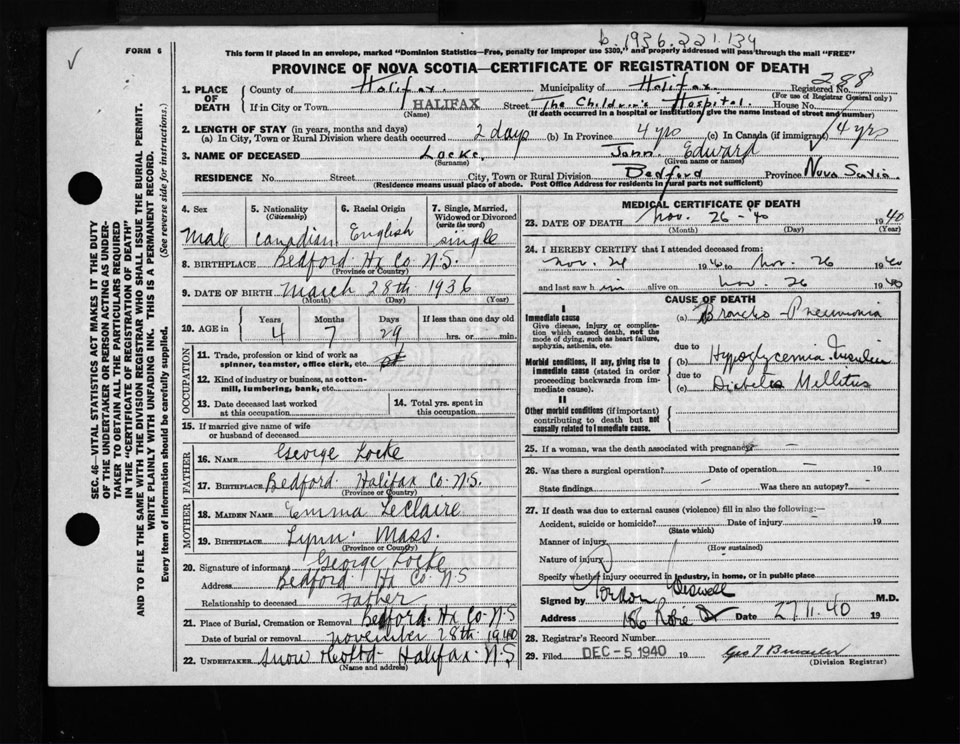 b. 1936.221.134
✓
FORM 6
This form if placed in an envelope, marked "Dominion Statistics—Free, penalty for improper use $300," and properly addressed will pass through the mail "FREE"
PROVINCE OF NOVA SCOTIA—CERTIFICATE OF REGISTRATION OF DEATH
288
1. PLACE OF DEATH County of Halifax. Municipality of Halifax. Registered No.
(For use of Registrar General only)
If in City or Town HALIFAX Street The Children's Hospital. House No.
(Name) (If death occurred in a hospital or institution, give the name instead of street and number)
2. LENGTH OF STAY (in years, months and days)
(a) In City, Town or Rural Division where death occurred 2 days (b) In Province 4 yrs (c) In Canada (if immigrant) 4 yrs
3. NAME OF DECEASED Locke. John Edward
(Surname) (Given name or names)
RESIDENCE No. Street City, Town or Rural Division Bedford Province Nova Scotia.
(Residence means usual place of abode. Post Office Address for residents in rural parts not sufficient)
4. Sex 5. Nationality (Citizenship) 6. Racial Origin 7. Single, Married, Widowed or Divorced (write the word)
Male Canadian English single
8. BIRTHPLACE Bedford Hx Co N.S.
(Province or Country)
9. DATE OF BIRTH March 28th 1936
(Month) (Day) (Year)
10. AGE in Years Months Days If less than one day old
4 7 29 hrs. or min.
OCCUPATION
11. Trade, profession or kind of work as spinner, teamster, office clerk, etc.
12. Kind of industry or business, as cotton-mill, lumbering, bank, etc.
13. Date deceased last worked at this occupation
14. Total yrs. spent in this occupation
15. If married give name of wife or husband of deceased
FATHER
16. NAME George Locke
17. BIRTHPLACE Bedford Halifax Co. N.S.
(Province or Country)
MOTHER
18. MAIDEN NAME Emma LeClaire
19. BIRTHPLACE Lynn. Mass.
(Province or Country)
20. Signature of informant George Locke
Address Bedford Hx Co. N.S
Relationship to deceased Father
21. Place of Burial, Cremation or Removal Bedford. Hx Co N.S
Date of burial or removal November 28th 1940
22. UNDERTAKER Snow & Co Ltd Halifax N.S
(Name and address)
MEDICAL CERTIFICATE OF DEATH
23. DATE OF DEATH Nov. 26 - 40 1940
(Month) (Day) (Year)
24. I HEREBY CERTIFY that I attended deceased from:
Nov. 24 1940 to Nov. 26 1940
and last saw him alive on Nov. 26 1940
CAUSE OF DEATH
I
Immediate cause
Give disease, injury or complication which caused death, not the mode of dying, such as heart failure, asphyxia, asthenia, etc.
(a) Broncho-Pneumonia
due to
Morbid conditions, if any, giving rise to immediate cause (stated in order proceeding backwards from immediate cause).
(b) Hypoglycemia Insulin
due to
(c) Diabetes Mellitus
II
Other morbid conditions (if important) contributing to death but not causally related to immediate cause.
25. If a woman, was the death associated with pregnancy? —
26. Was there a surgical operation? — Date of operation — 19
State findings Was there an autopsy? —
27. If death was due to external causes (violence) fill in also the following:—
Accident, suicide or homicide? Date of injury 19
(State which)
Manner of injury
(How sustained)
Nature of injury
Specify whether injury occurred in industry, in home, or in public place
Signed by Gordon Wiswell M.D.
Address 186 Robie St Date 27 11. 40 19
28. Registrar's Record Number
29. Filed DEC - 5 1940 19
(Division Registrar)
SEC. 46—VITAL STATISTICS ACT MAKES IT THE DUTY
OF THE UNDERTAKER OR PERSON ACTING AS UNDER-
TAKER TO OBTAIN ALL THE PARTICULARS REQUIRED
IN THE "CERTIFICATE OF REGISTRATION OF DEATH"
AND TO FILE THE SAME WITH THE DIVISION REGISTRAR WHO SHALL ISSUE THE BURIAL PERMIT.
WRITE PLAINLY WITH UNFADING INK. THIS IS A PERMANENT RECORD.
Every item of information should be carefully supplied. (See reverse side for instructions.)